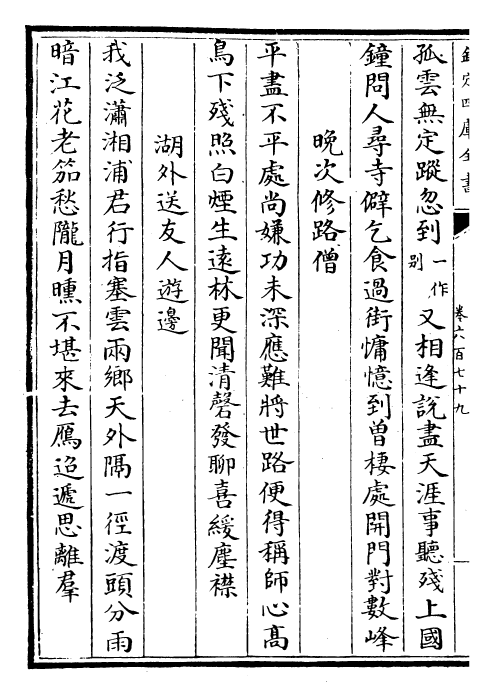 欽定四庫全書
卷六百七十九
孤雲無定蹤忽到一作别又相逢說盡天涯事聽殘上國
鐘問人尋寺僻乞食過街慵憶到曽棲處開門對數峰
晚次修路僧
平盡不平處尚嫌功未深應難將世路便得稱師心髙
鳥下殘照白煙生逺林更聞清磬發聊喜緩塵襟
湖外送友人遊邊
我泛瀟湘浦君行指塞雲兩鄉天外隔一徑渡頭分雨
暗江花老笳愁隴月曛不堪來去鴈迢遞思離羣